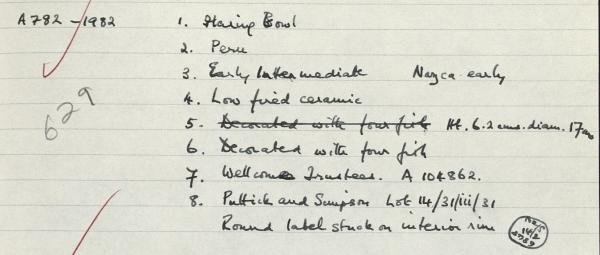 A782 - 1982 1. Flaring Bowl
2. Peru
3. Early Intermediate Nazca early
4. Low fired ceramic
5. Decorated with four fish Ht. 6.2 cms. diam. 17cms
629
6. Decorated with four fish
7. Wellcome Trustees. A 104862.
8. Puttick and Simpson Lot 14/31/iii/31
Round label stuck on interior rim
14/2